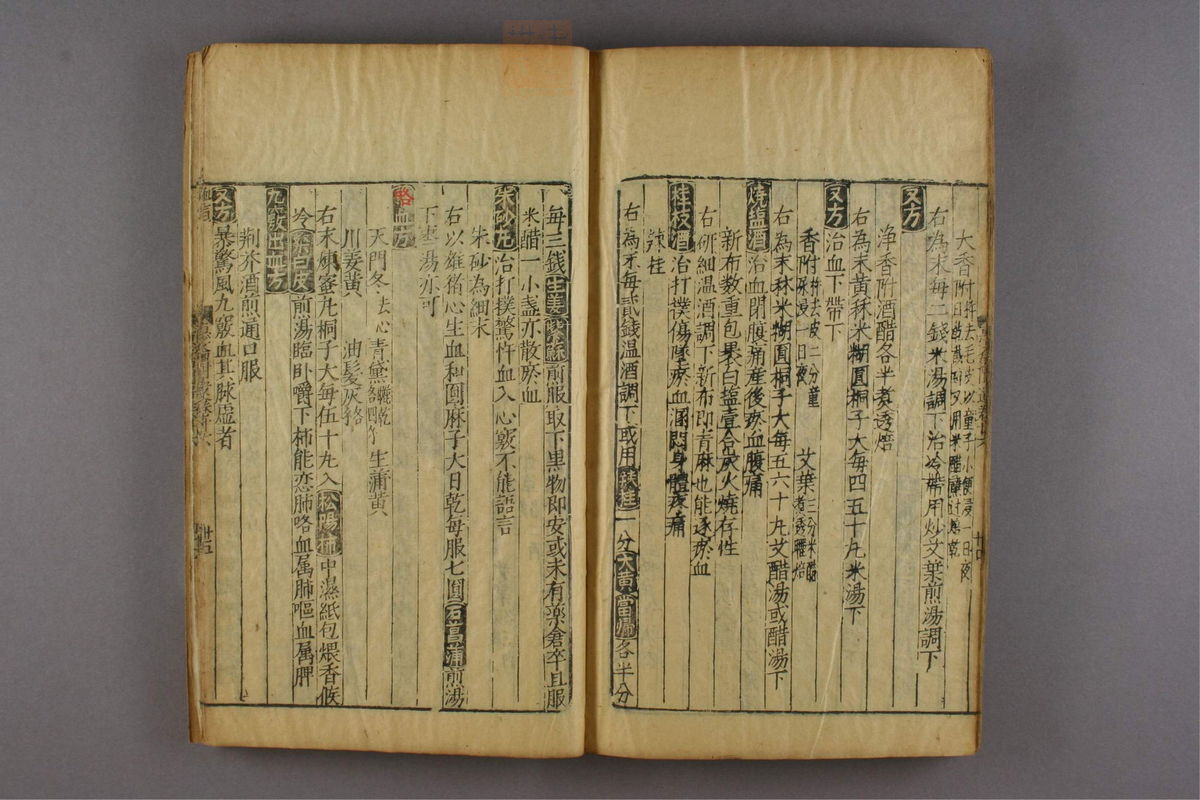 大香附杵去毛　以童子小便浸一日夜
右為末每二錢米湯調下治冷帶用炒艾葉煎湯調下
又方
淨香附酒醋各半煮透焙
右為末黃秫米糊圓桐子大每四五十丸米湯下
又方
治血下帶下
香附杵去皮二分童尿浸一日夜　艾葉三分米醋煮透曬焙
右為末秫米糊圓桐子大每五六十丸艾醋湯或醋湯下
燒塩酒
治血閉腹痛產後瘀血腹痛
新布数重包裹白塩壹合炭火燒存性
右研細温酒調下新布即青麻也能逐瘀血
桂枝酒
治打撲傷墜瘀血溷悶身體疼痛
辣桂
右為末每貳錢温酒調下或用辣桂一分大黄當歸各半分
每三錢生姜紫蘇煎服取下黒物即安或未有薬倉卒且服
米醋一小盞亦散瘀血
朱砂丸
治打撲驚忤血入心竅不能語言
朱砂為細末
右以雄猪心生血和圓麻子大日乾每服七圓石菖蒲煎湯
下棗湯亦可
咯血方
天門冬去心　青黛　生蒲黄
川姜黄　油髮灰　
右末煉蜜丸桐子大每伍十丸入松陽柿中濕紙包煨香候
冷桑白皮煎湯臨卧嚼下柿能恋肺咯血属肺嘔血属脾
九竅出血方
荆芥酒煎通口服
又方
暴驚風九竅血其脉虚者